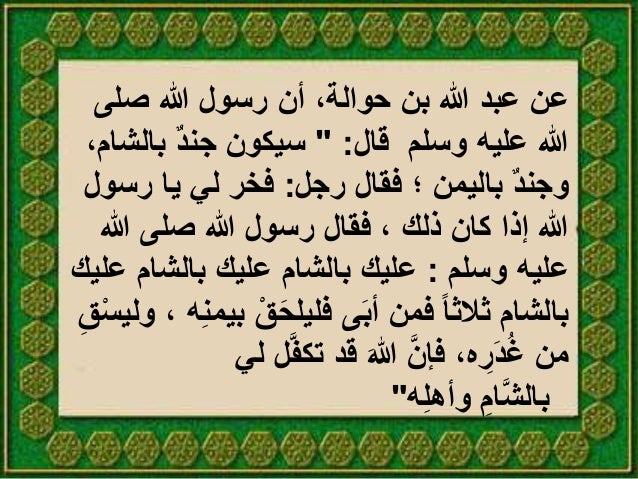 عن عبد الله بن حوالة، أن رسول الله صلى
الله عليه وسلم قال: " سيكون جندٌ بالشام،
وجندٌ باليمن ؛ فقال رجل: فخر لي يا رسول
الله إذا كان ذلك ، فقال رسول الله صلى الله
عليه وسلم : عليك بالشام عليك بالشام عليك
بالشام ثلاثاً فمن أبَى فليلحَقْ بيمنِه ، وليسْقِ
من غُدَرِه، فإنَّ اللهَ قد تكفَّل لي
بالشَّامِ وأهلِه"